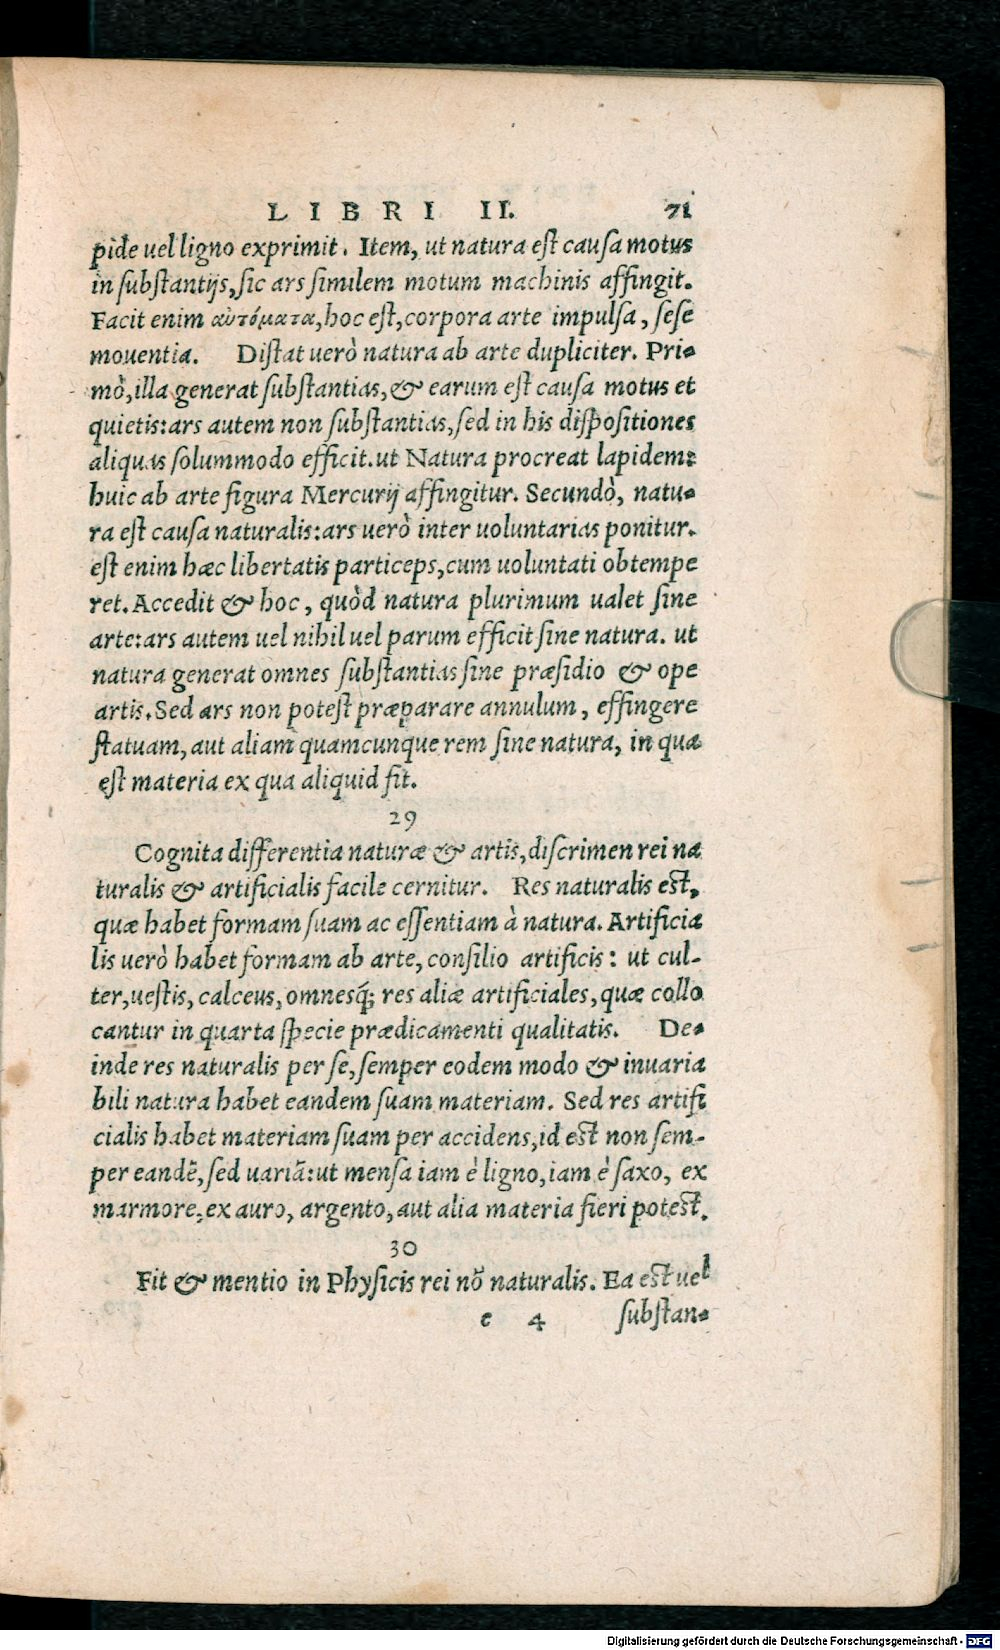 LIBRI II. 71
pide uel ligno exprimit. Item, ut natura est causa motus
in substantijs, sic ars similem motum machinis affingit.
Facit enim αὐτόματα, hoc est, corpora arte impulsa, sese
mouentia. Distat uerò natura ab arte dupliciter. Pri-
mò, illa generat substantias, & earum est causa motus et
quietis: ars autem non substantias, sed in his dispositiones
aliquas solummodo efficit. ut Natura procreat lapidem:
huic ab arte figura Mercurij affingitur. Secundò, natu-
ra est causa naturalis: ars uerò inter uoluntarias ponitur.
est enim hæc libertatis particeps, cum uoluntati obtempe
ret. Accedit & hoc, quòd natura plurimum ualet sine
arte: ars autem uel nihil uel parum efficit sine natura. ut
natura generat omnes substantias sine præsidio & ope
artis. Sed ars non potest præparare annulum, effingere
statuam, aut aliam quamcunque rem sine natura, in qua
est materia ex qua aliquid fit.
29
Cognita differentia naturæ & artis, discrimen rei na
turalis & artificialis facile cernitur. Res naturalis est,
quæ habet formam suam ac essentiam à natura. Artificia
lis uerò habet formam ab arte, consilio artificis: ut cul-
ter, uestis, calceus, omnesq́; res aliæ artificiales, quæ collo
cantur in quarta specie prædicamenti qualitatis. De-
inde res naturalis per se, semper eodem modo & inuaria
bili natura habet eandem suam materiam. Sed res artifi
cialis habet materiam suam per accidens, id est non sem-
per eandẽ, sed uariã: ut mensa iam è ligno, iam è saxo, ex
marmore, ex auro, argento, aut alia materia fieri potest.
30
Fit & mentio in Physicis rei nõ naturalis. Ea est uel
e 4 substan-
Digitalisierung gefördert durch die Deutsche Forschungsgemeinschaft - DFG